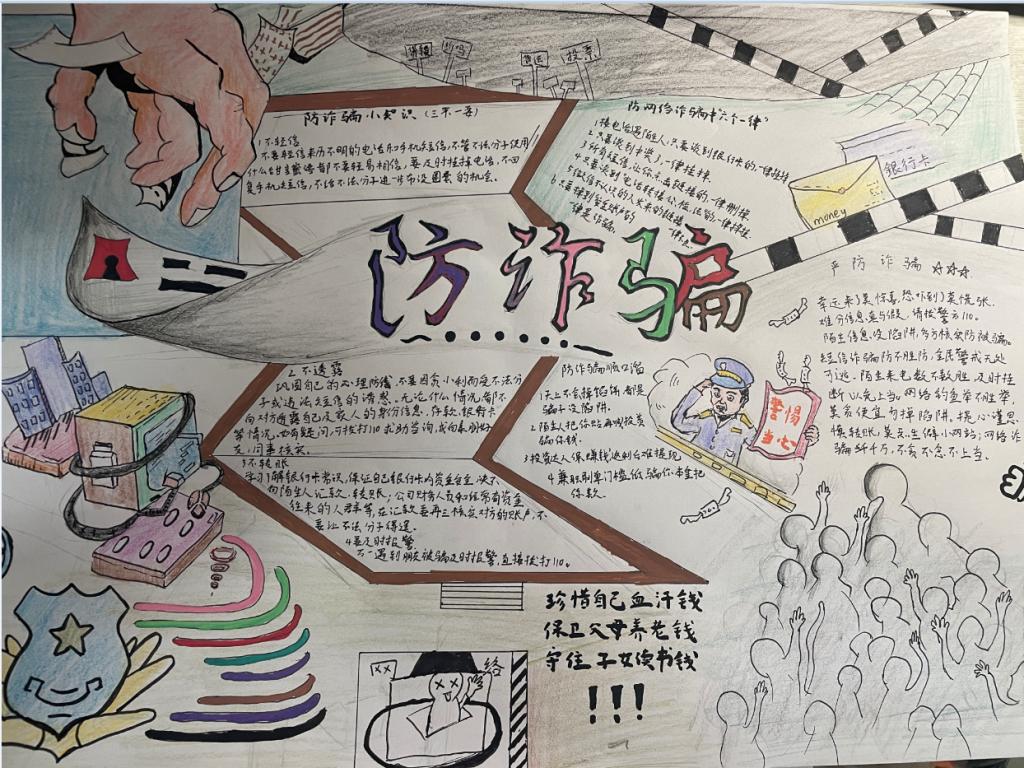 投票
防诈骗小知识(三不一要)
1.不轻信
不要轻信来历不明的电话和手机短信,不管不法分子使用
什么甜言蜜语都不要轻易相信,要及时挂掉电话,不回
复手机短信,不给不法分子进一步布设圈套的机会。
防网络诈骗"六个一律"
1.接电话遇陌生人,只要谈到银行卡的,一律挂掉
2.只要谈到中奖,一律挂掉
3.所有短信,让你点击链接的,一律删掉
银行卡
money
防诈骗
严防诈骗
幸运来了莫惊喜,恐吓到了莫慌张。
难分信息真与假,请拨警方110。
陌生信息没陷阱,多方核实防被骗。
短信诈骗防不胜防,全民警戒无处
可逃。陌生来电数不数胜,及时挂
断以免上当。网络钓鱼举不胜举,
莫贪便宜勾掉陷阱。提心谨思
慎转账,莫
骗术千万,不贪不念不上当。
2.不透露
巩固自己的心理防线,不要因贪小利而受不法分
子或违法短信的诱惑。无论什么情况都不
向对方透露自己及家人的身份信息、存款、银行卡
等情况。如有疑问,可拨打110求助咨询,或向亲朋好
友、同事核实。
3.不转账
学习了解银行卡常识,保证自己银行卡内资金安全,决不
向陌生人汇款、转账;公司财务人员和经常有资金
往来的人群等,在汇款要再三核实对方的账户,不
要让不法分子得逞。
4.要及时报警
不一遇到朋友被骗及时报警,直接拨打110。
防诈骗顺口溜
1.天上不会掉馅饼,都是
骗子没陷阱。
2.陌生人把你
骗你钱。
3.投资达人保赚钱,返利台难提现
4.兼职刷单门槛低,骗你本金把
你款。
警惕
当心
珍惜自己血汗钱
保卫父母养老钱
守住子女读书钱
!!!
络